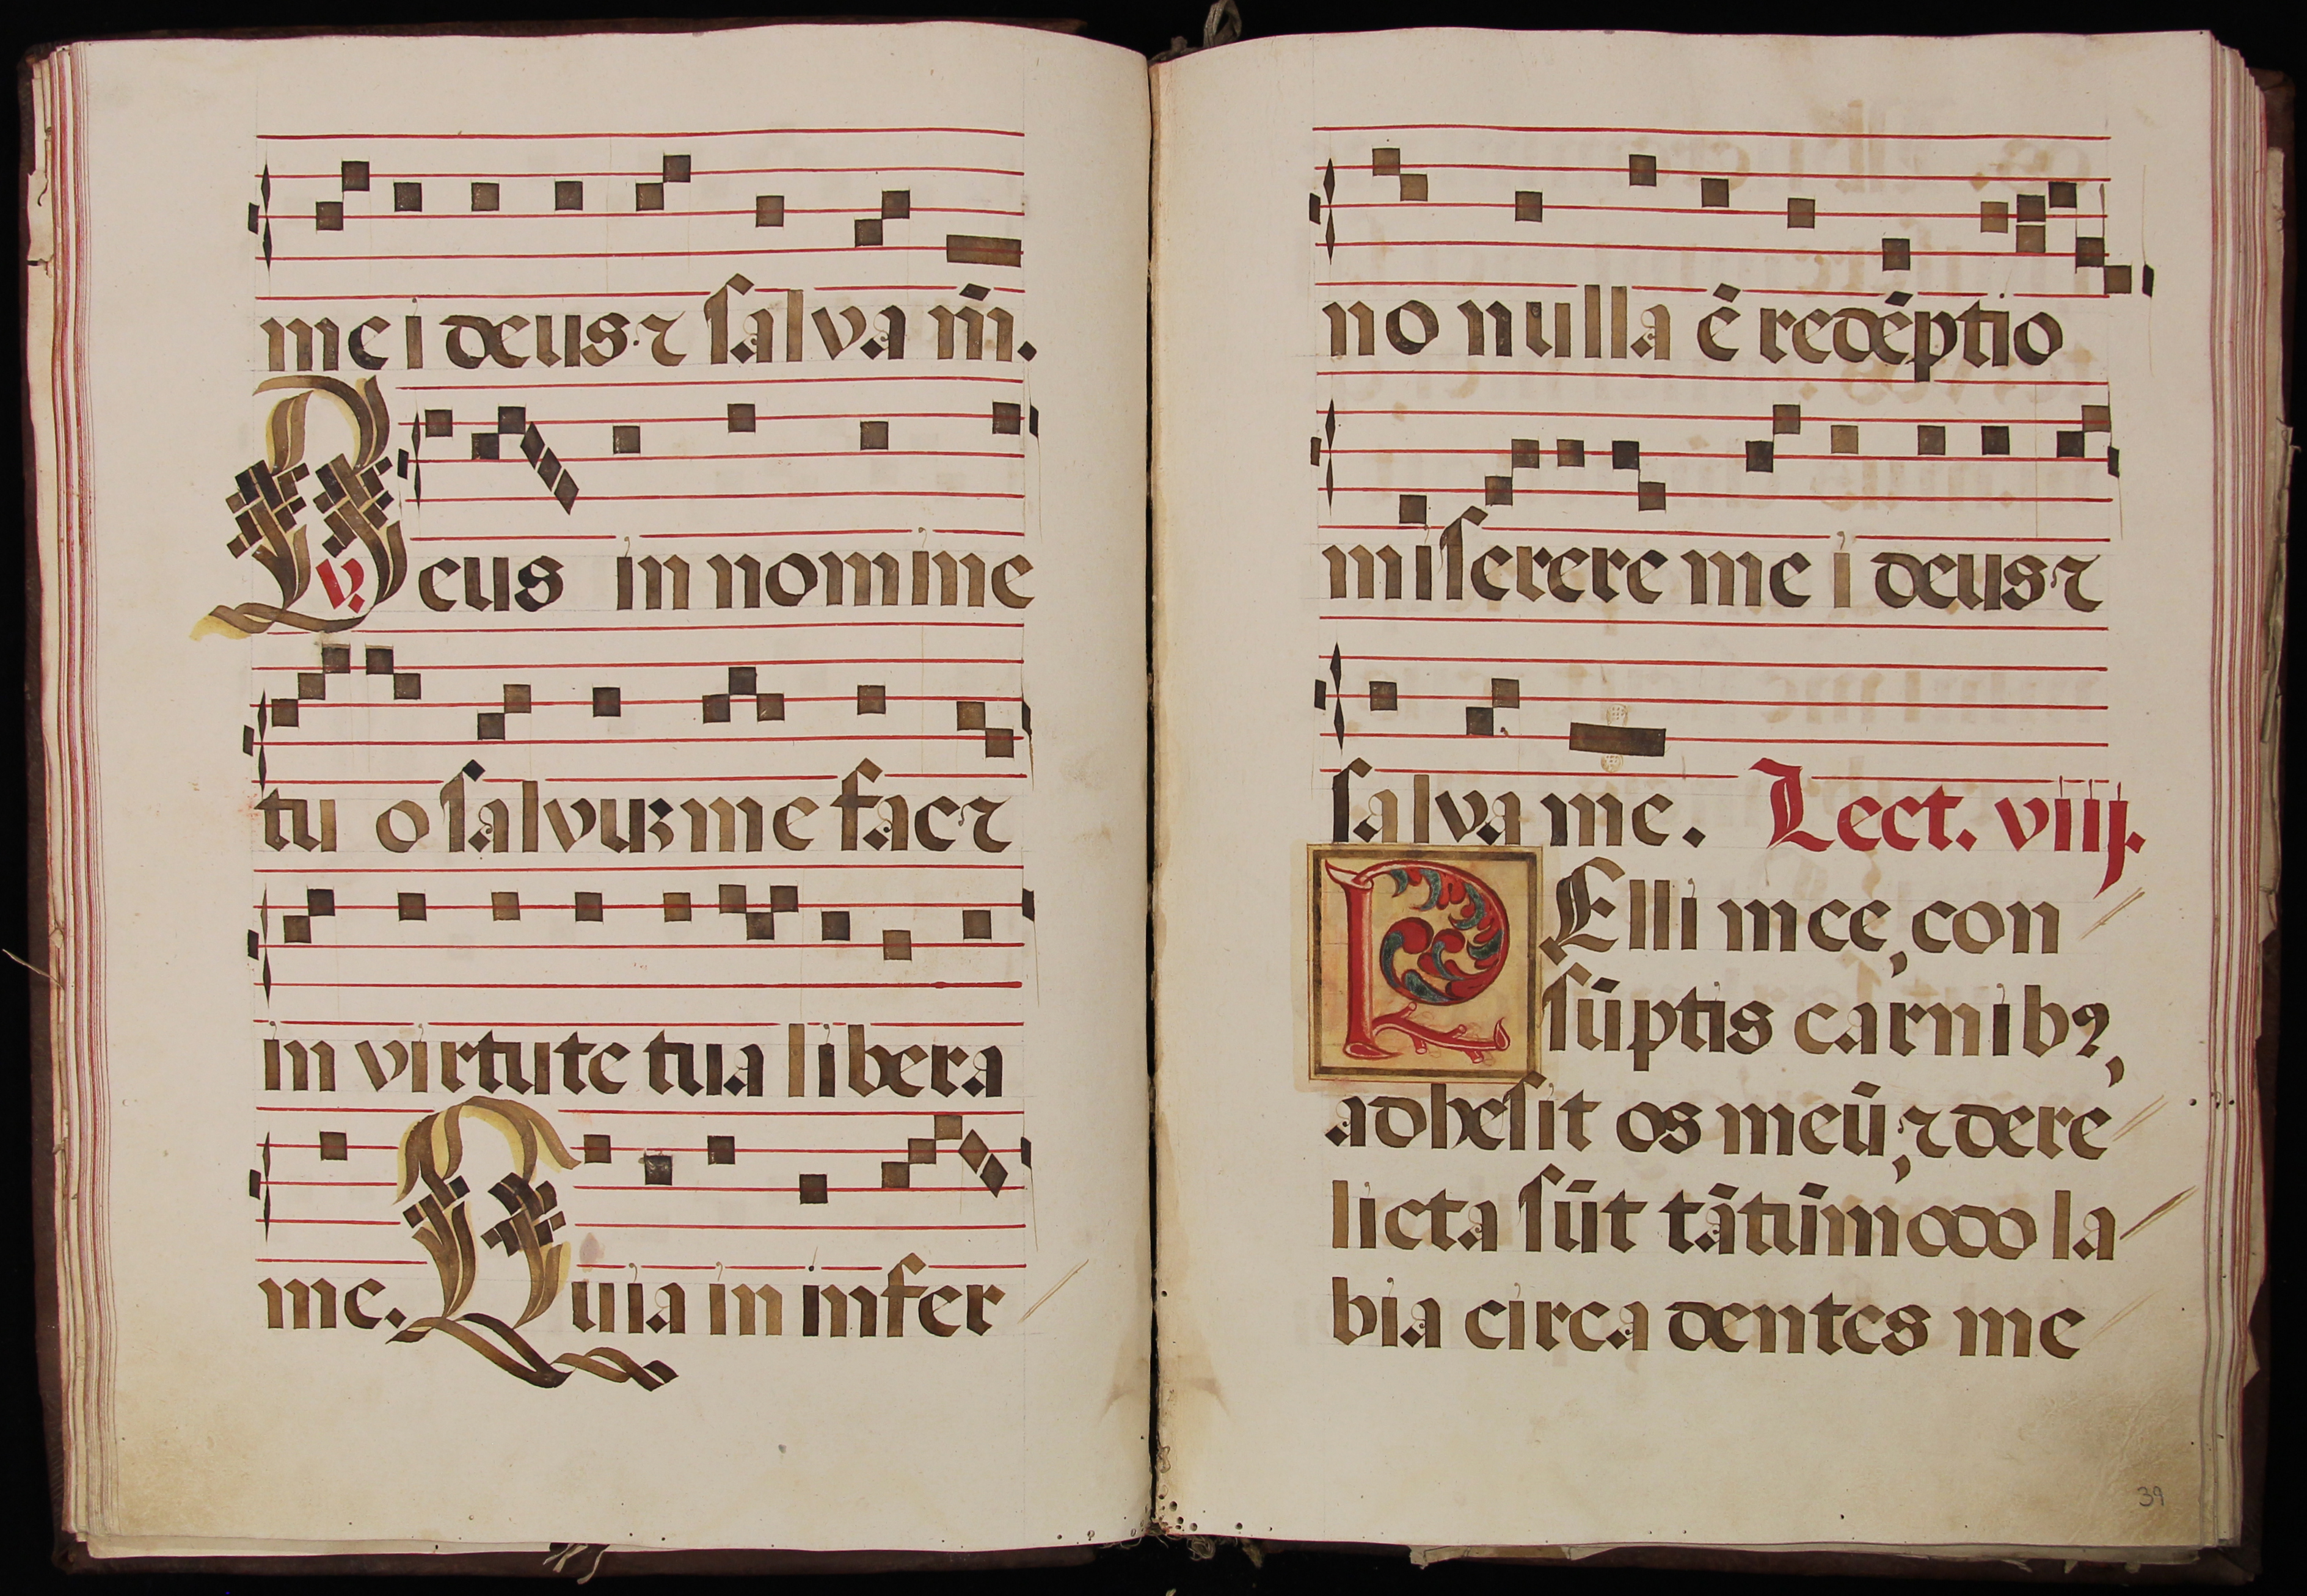 me i deus ⁊ salva m̄.
℣. Deus in nomine
tu o salvuʒ me fac ⁊
in virtute tua libera
me. Quia in infer
no nulla ē redẽptio
miserere me i deus ⁊
salva me. Lect. viiij.
PElli mee, con
sūptis carnibꝰ,
adhesit os meū, ⁊ dere
licta sūt tātūmodo la
bia circa dentes me
39